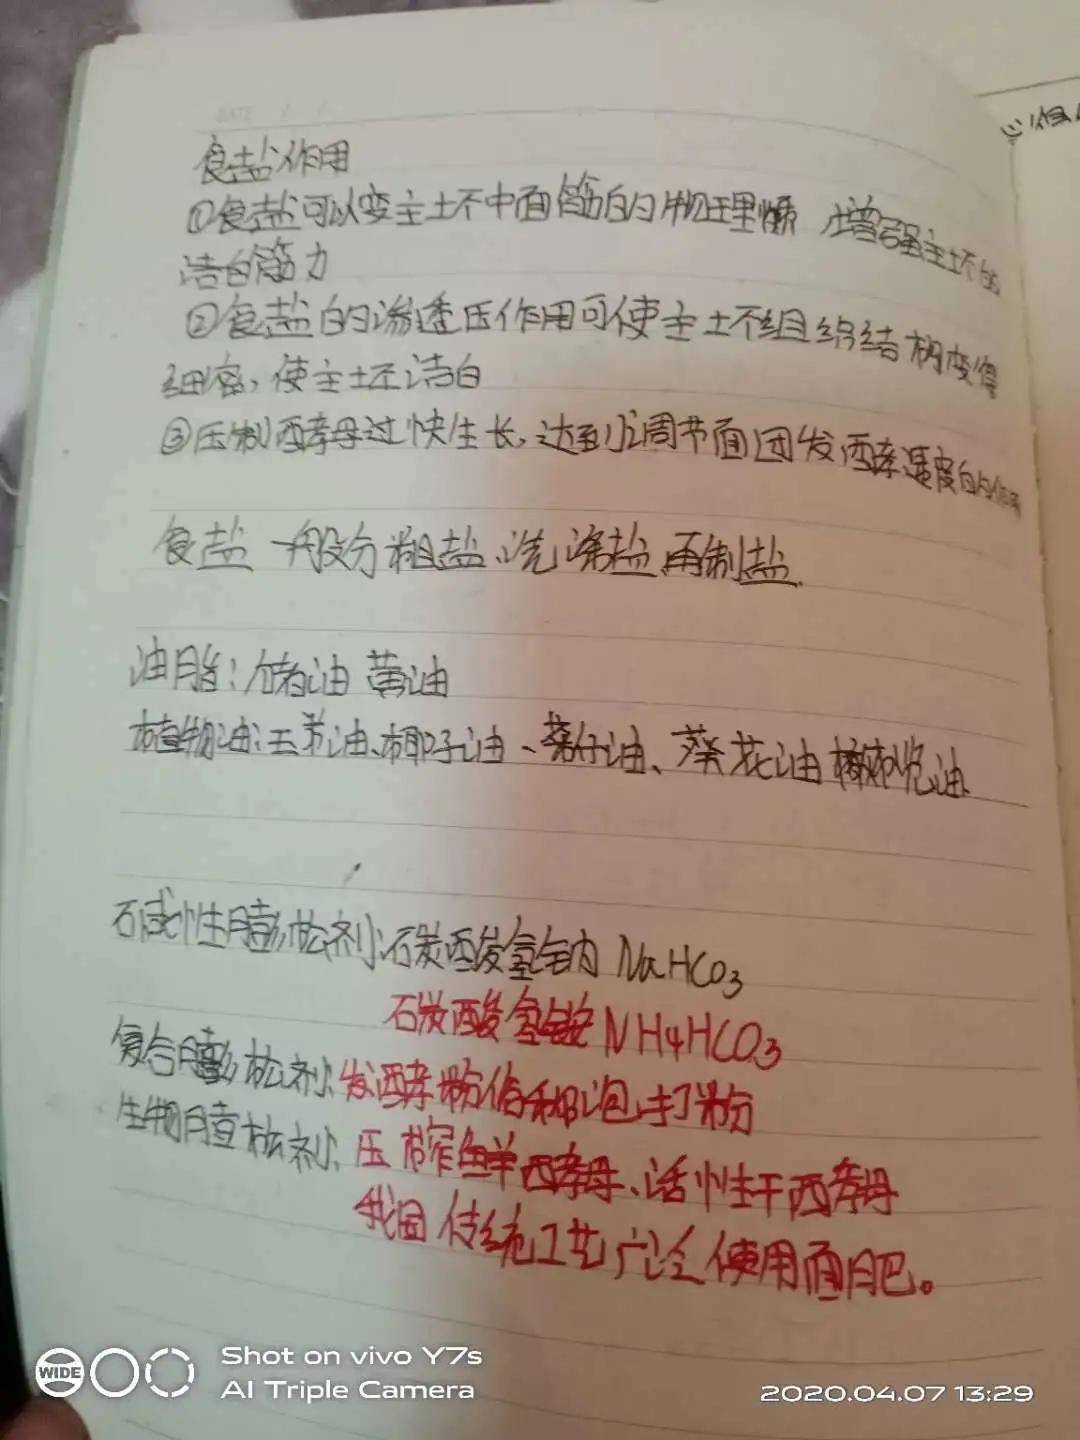 DATE / /
食盐作用
①食盐可以变主坯中面筋的物理惯 增强主坯的
洁白筋力
②食盐的渗透压作用可使主坯组织结构变得
细密,使主坯洁白
③压制酵母过快生长,达到调节面团发酵速度的作用
食盐 一般分粗盐、洗涤盐 再制盐
油脂:储油 黄油
植物油:玉米油、椰子油、菜仔油、葵花油 橄榄油
碱性膨松剂:碳酸氢钠 NaHCO3
碳酸氢铵 NH4HCO3
复合膨松剂:发酵粉俗称泡打粉
生物膨松剂:压榨鲜酵母、活性干酵母
我国传统工艺广泛使用面肥。
WIDE
Shot on vivo Y7s
AI Triple Camera
2020.04.07 13:29